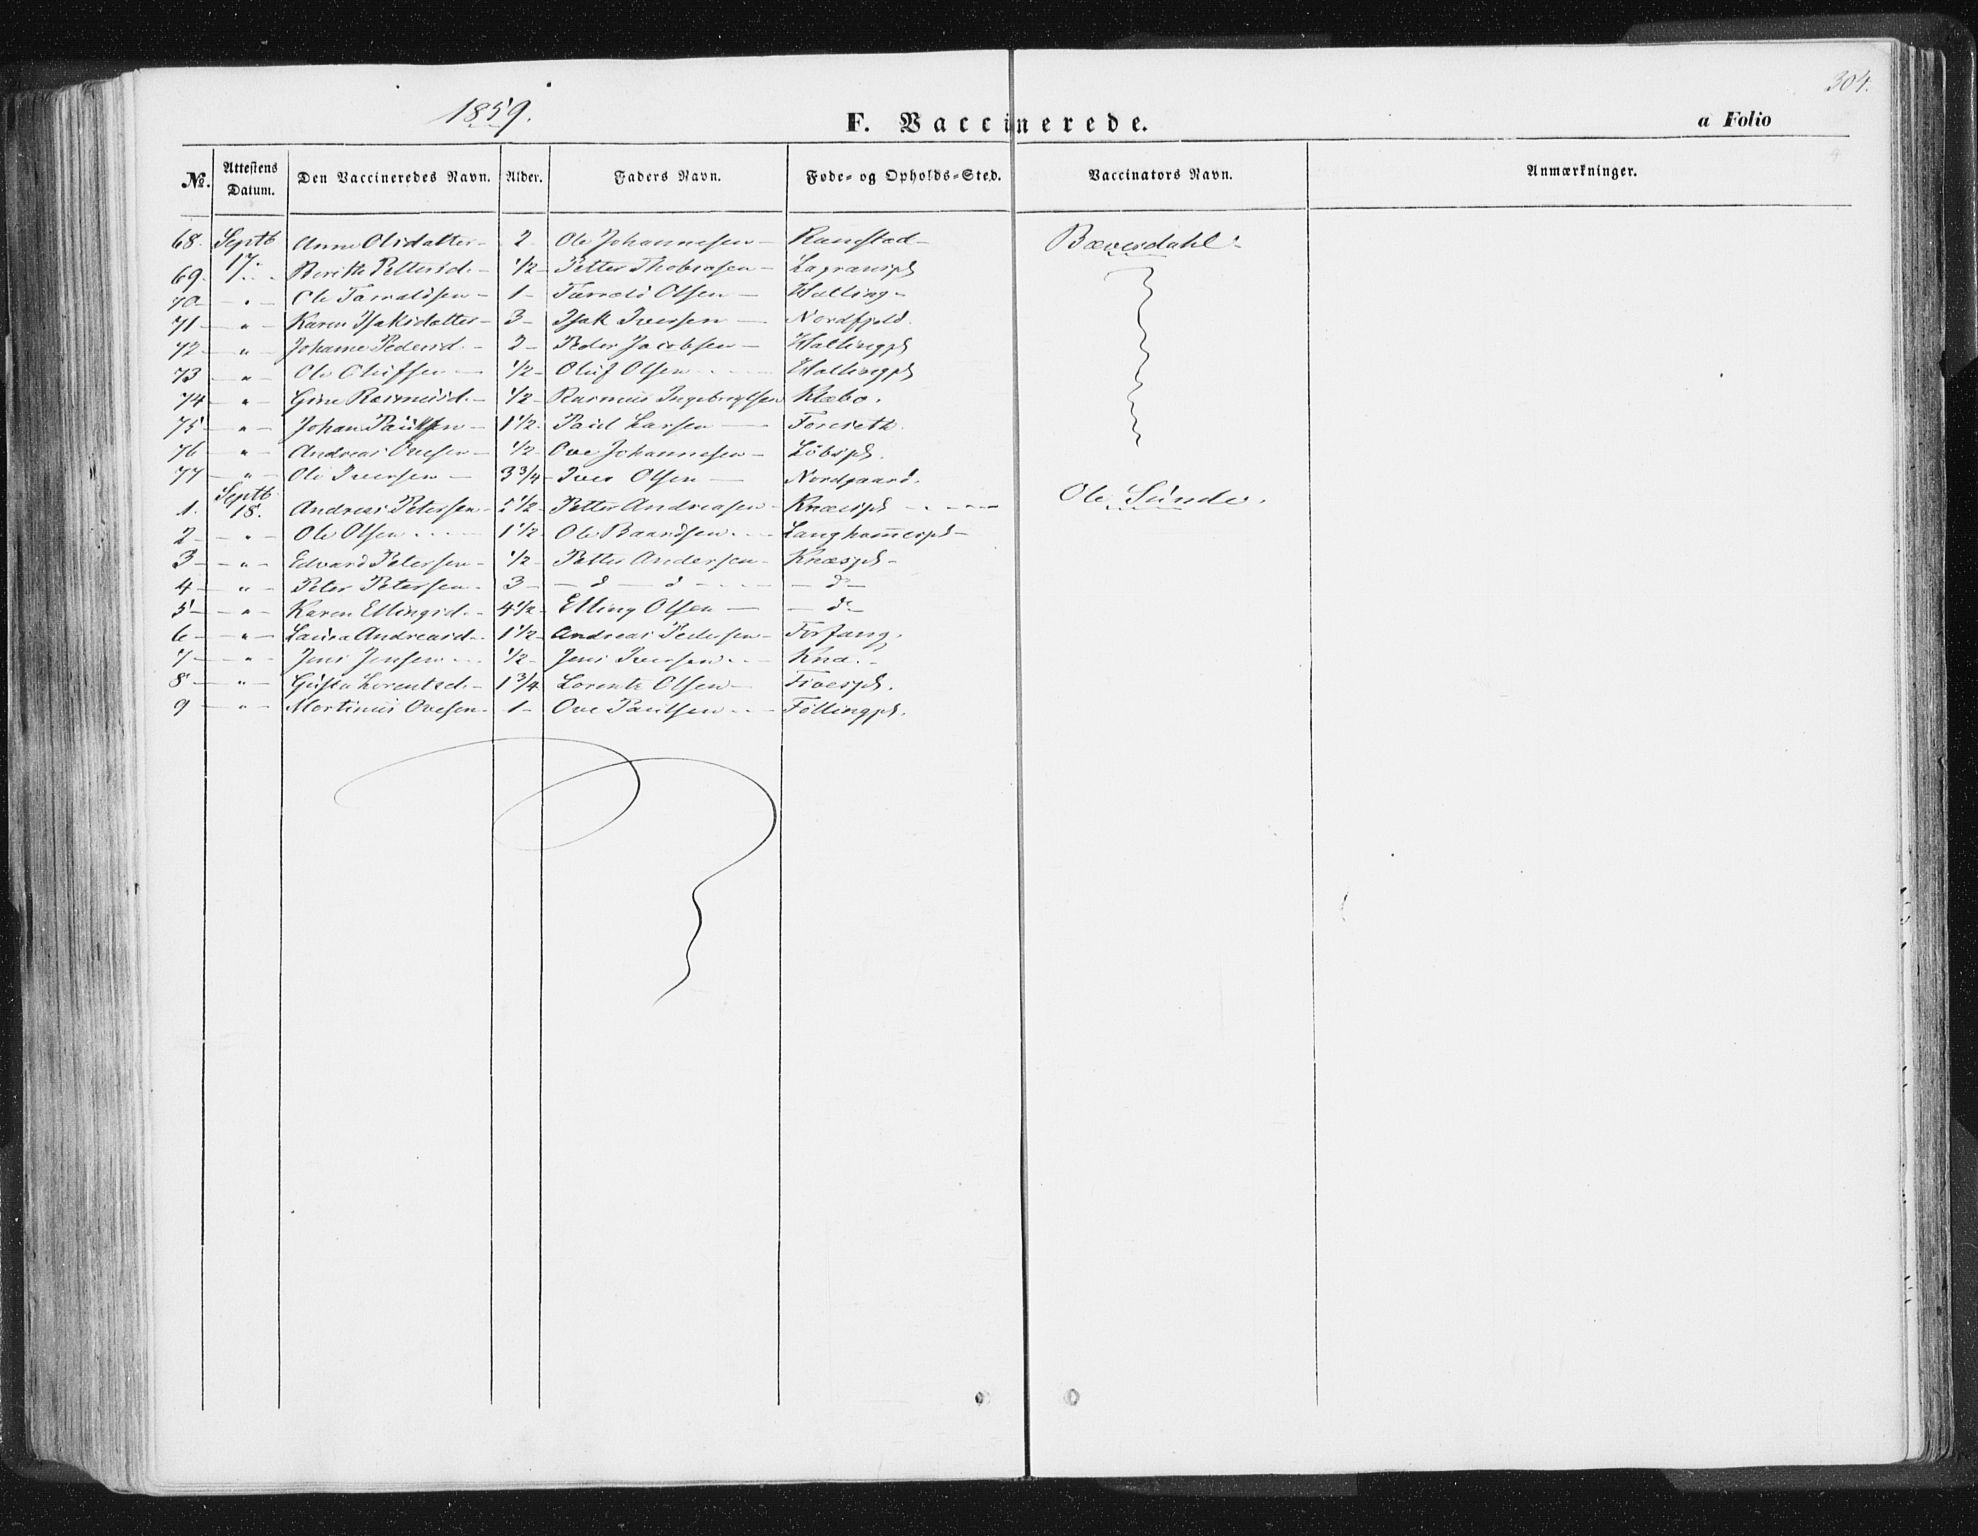 304.
1859.
F. Vaccinerede. a Folio
No. Attestens Datum. Den Vaccineredes Navn. Alder. Faders Navn. Føde- og Opholds-Sted. Vaccinators Navn. Anmærkninger.
68. Septb 17. Anne Olsdatter 2 Ole Johannesen Ranstad Bæverdahl
69. " Petersd. 1/2 Petter
70 " Ole Tarraldsen 1 Tarrald Olsen Halling
71 " Karen Isaksdatter 3 Isak Iversen Nordfjeld
72 " Johanne Pedersd. 2 Peder Jacobsen Hallingpl
73 " Ole Olufsen 1/2 Oluf Olsen Hallingpl
74 " Gine Rasmusd. 1/2 Rasmus Ingebrigtsen Klæbo.
75 " Johan Paulsen 1 1/2 Paul Larsen
76 " Andreas Ovesen 1/2 Ove Johannesen
77 " Ole Iversen 3 3/4 Iver Olsen Nordgaard.
1. Septb 18. Andreas Petersen 2 1/2 Petter Andreasen Knæspl Ole Sunde.
2 " Ole Olsen 1 1/2 Ole Baardsen Langhammerspl
3 " Edvard Petersen 1/2 Petter Andersen Knæspl
4 " Peter Petersen 3 d d d
5 " Karen Ellingsd. 4 1/2 Elling Olsen d
6 " Laura Andreasd. 1 1/2 Andreas Pedersen Forfang.
7 " Jens Jensen 1/2 Jens Iversen Knæ.
8 " Gusta Lorentzd. 1 3/4 Lorentz Olsen
9 " Mortinus Ovesen 1 Ove Paulsen Föllingpl.